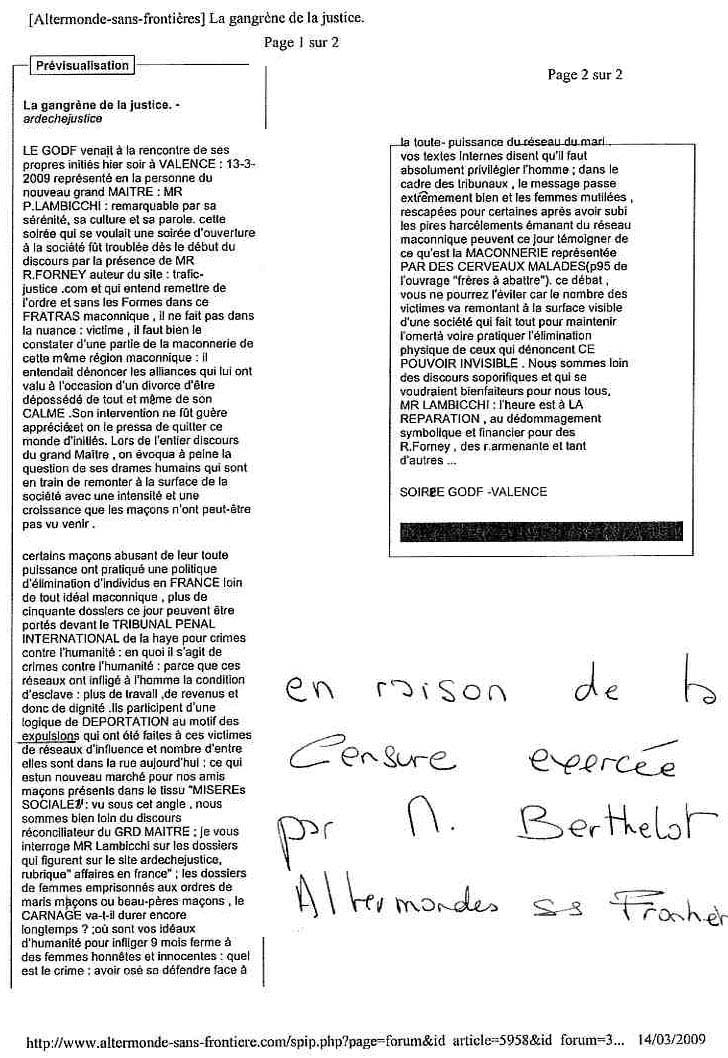 [Altermonde-sans-frontières] La gangrène de la justice.
Page 1 sur 2
Prévisualisation
La gangrène de la justice. -
ardechejustice
LE GODF venait à la rencontre de ses
propres initiés hier soir à VALENCE : 13-3-
2009 représenté en la personne du
nouveau grand MAITRE : MR
P.LAMBICCHI : remarquable par sa
sérénité, sa culture et sa parole. cette
soirée qui se voulait une soirée d'ouverture
à la société fût troublée dès le début du
discours par la présence de MR
R.FORNEY auteur du site : trafic-
justice .com et qui entend remettre de
l'ordre et sans les Formes dans ce
FRATRAS maconnique , il ne fait pas dans
la nuance : victime , il faut bien le
constater d'une partie de la maconnerie de
cette même région maconnique : il
entendait dénoncer les alliances qui lui ont
valu à l'occasion d'un divorce d'être
dépossédé de tout et même de son
CALME .Son intervention ne fût guère
appréciéeet on le pressa de quitter ce
monde d'initiés. Lors de l'entier discours
du grand Maître , on évoqua à peine la
question de ses drames humains qui sont
en train de remonter à la surface de la
société avec une intensité et une
croissance que les maçons n'ont peut-être
pas vu venir .
certains maçons abusant de leur toute
puissance ont pratiqué une politique
d'élimination d'individus en FRANCE loin
de tout idéal maconnique , plus de
cinquante dossiers ce jour peuvent être
portés devant le TRIBUNAL PENAL
INTERNATIONAL de la haye pour crimes
contre l'humanité : en quoi il s'agit de
crimes contre l'humanité : parce que ces
réseaux ont infligé à l'homme la condition
d'esclave : plus de travail ,de revenus et
donc de dignité .Ils participent d'une
logique de DEPORTATION au motif des
expulsions qui ont été faites à ces victimes
de réseaux d'influence et nombre d'entre
elles sont dans la rue aujourd'hui : ce qui
estun nouveau marché pour nos amis
maçons présents dans le tissu "MISEREs
SOCIALE" : vu sous cet angle , nous
sommes bien loin du discours
réconciliateur du GRD MAITRE ; je vous
interroge MR Lambicchi sur les dossiers
qui figurent sur le site ardechejustice,
rubrique" affaires en france" ; les dossiers
de femmes emprisonnés aux ordres de
maris maçons ou beau-pères maçons , le
CARNAGE va-t-il durer encore
longtemps ? ;où sont vos idéaux
d'humanité pour infliger 9 mois ferme à
des femmes honnêtes et innocentes : quel
est le crime : avoir osé se défendre face à
Page 2 sur 2
la toute- puissance du réseau du mari .
vos textes internes disent qu'il faut
absolument privilégier l'homme ; dans le
cadre des tribunaux , le message passe
extrêmement bien et les femmes mutilées ,
rescapées pour certaines après avoir subi
les pires harcèlements émanant du réseau
maconnique peuvent ce jour témoigner de
ce qu'est la MACONNERIE représentée
PAR DES CERVEAUX MALADES(p95 de
l'ouvrage "frères à abattre"). ce débat ,
vous ne pourrez l'éviter car le nombre des
victimes va remontant à la surface visible
d'une société qui fait tout pour maintenir
l'omertà voire pratiquer l'élimination
physique de ceux qui dénoncent CE
POUVOIR INVISIBLE . Nous sommes loin
des discours soporifiques et qui se
voudraient bienfaiteurs pour nous tous,
MR LAMBICCHI : l'heure est à LA
REPARATION , au dédommagement
symbolique et financier pour des
R.Forney , des r.armenante et tant
d'autres ...
SOIREE GODF -VALENCE
en raison de la
Censure exercée
par M. Berthelot
Altermondes ss Frontièr
http://www.altermonde-sans-frontiere.com/spip.php?page=forum&id_article=5958&id_forum=3... 14/03/2009